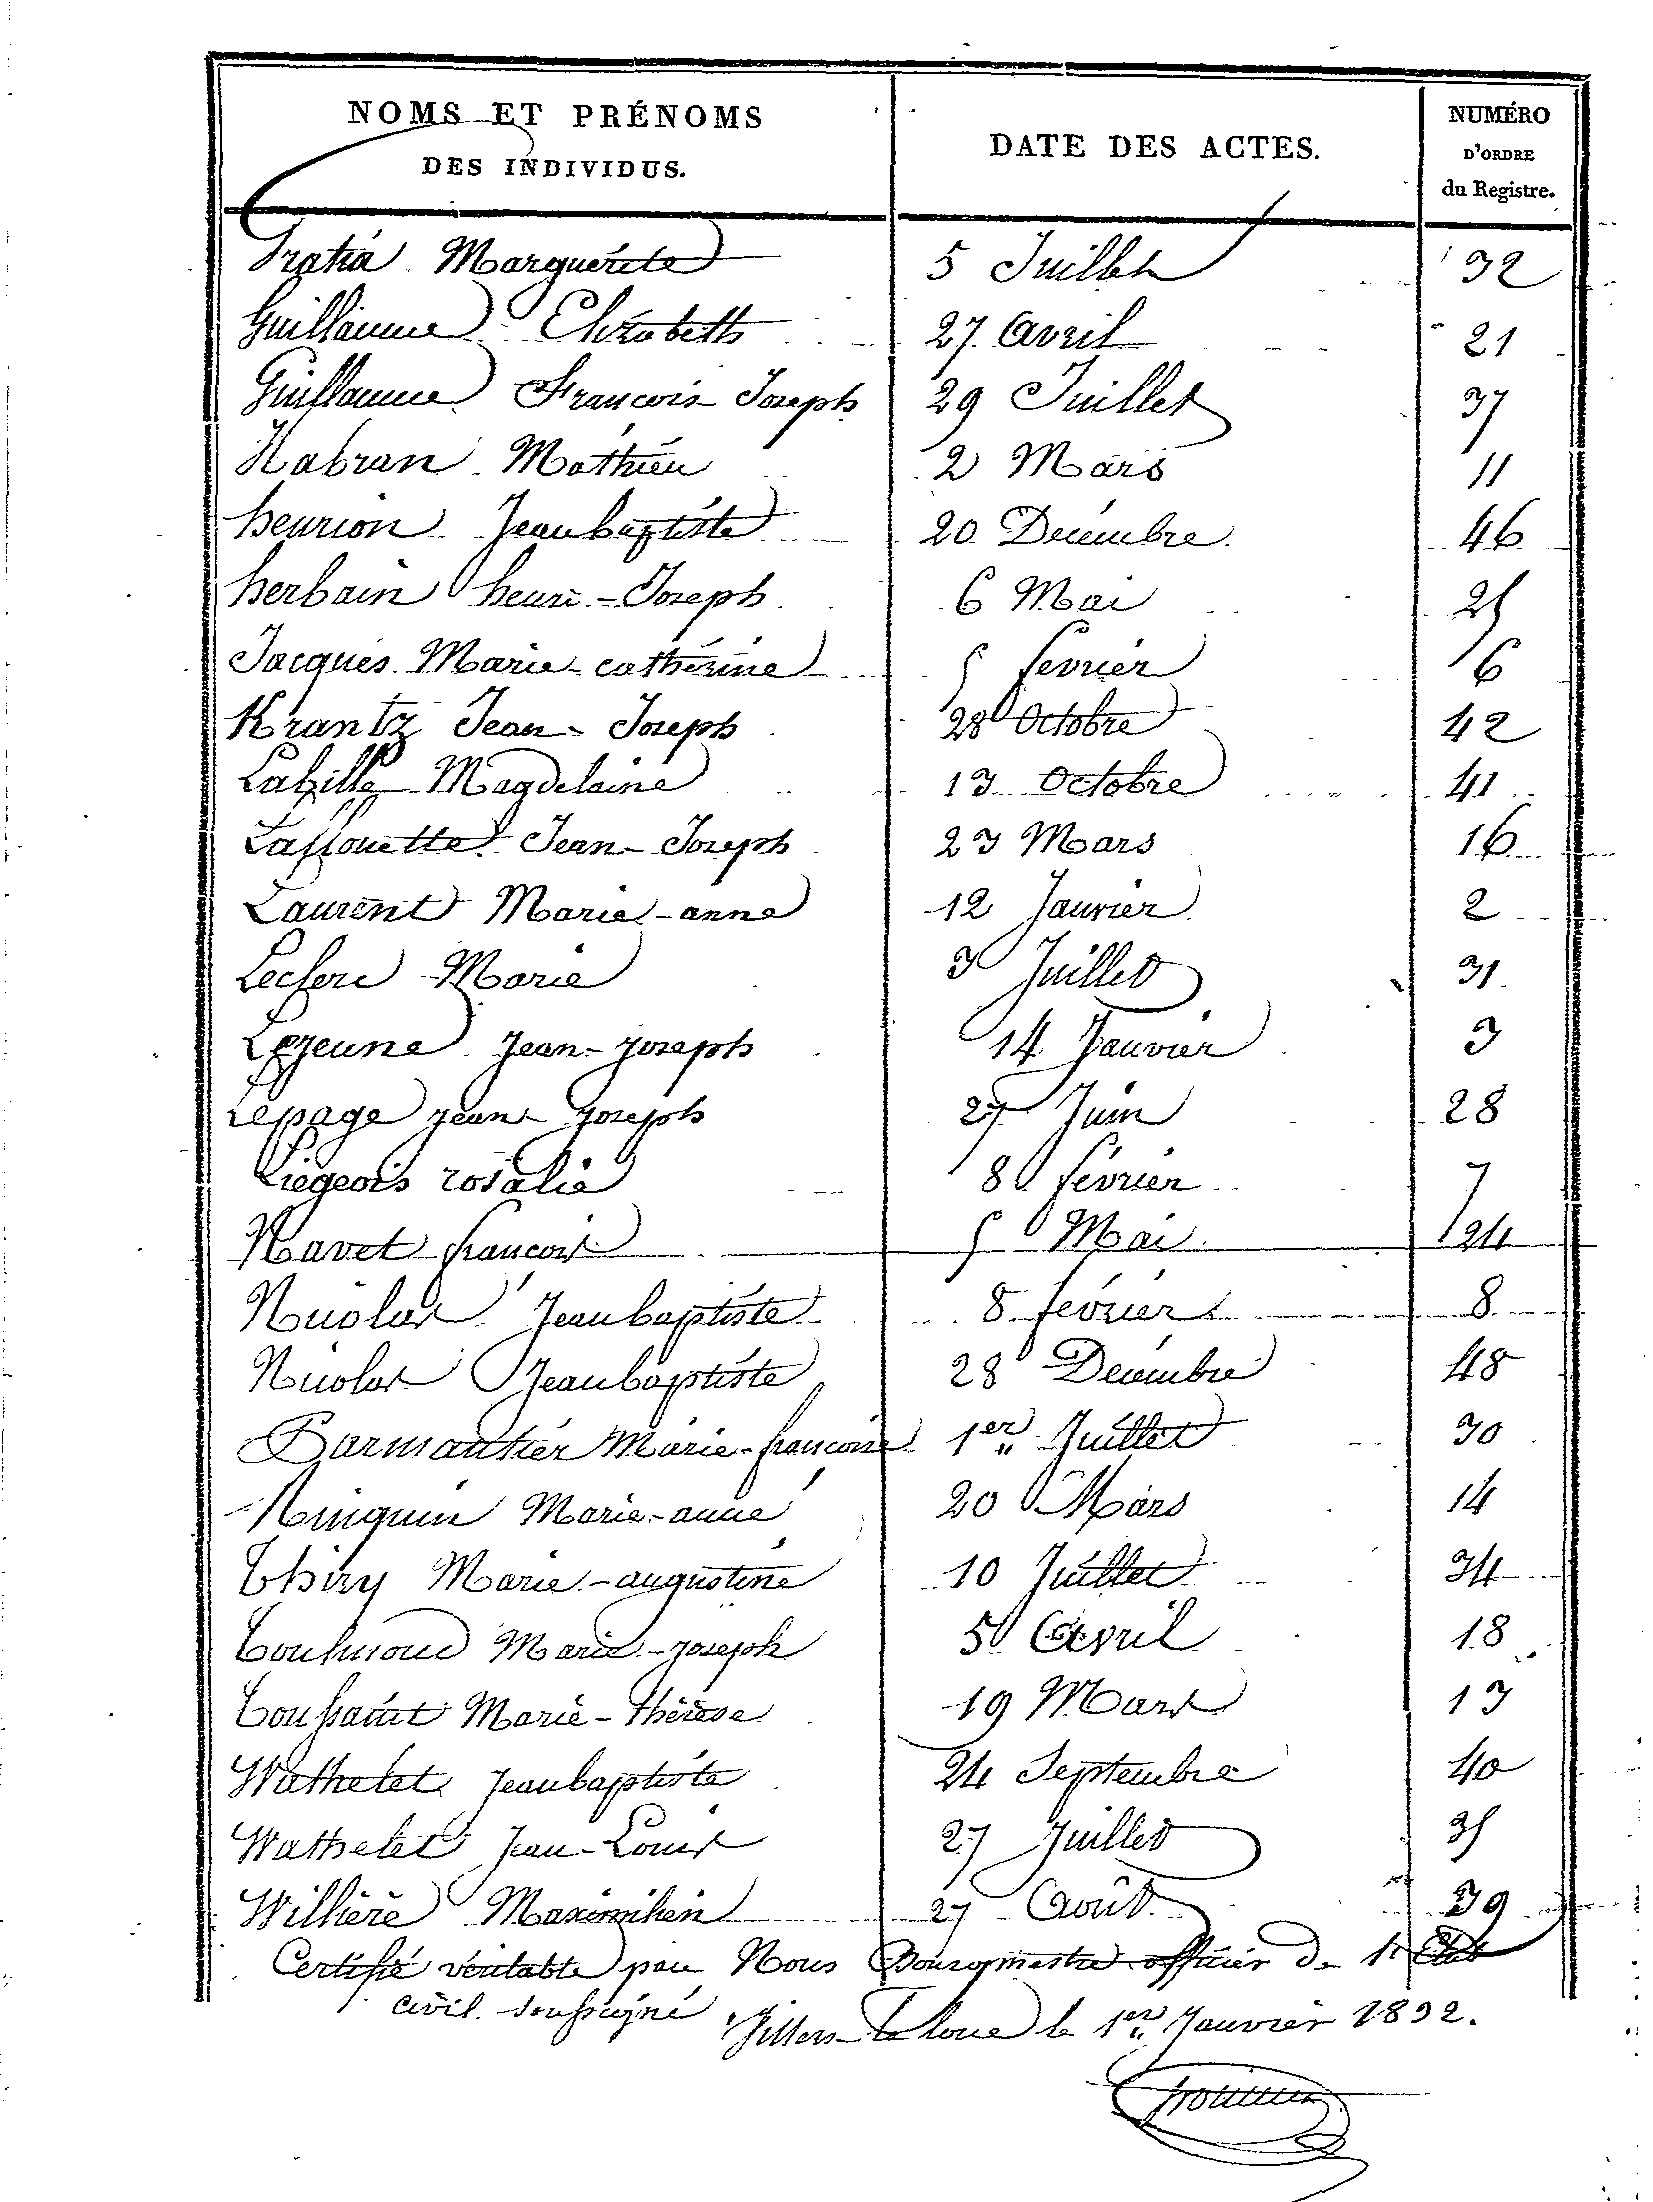 NOMS ET PRÉNOMS
DES INDIVIDUS.
DATE DES ACTES.
NUMÉRO
D'ORDRE
du Registre.
Marguerite 5 Juillet 32
Guillaume Elizabeth 27 Avril 21
Guillaume François Joseph 29 Juillet 37
Habran Mathieu 2 Mars 11
henrion Jean baptiste 20 Decembre 46
herbain henri-Joseph 6 Mai 25
Jacques Marie-catherine 5 fevrier 6
Krantz Jean-Joseph 28 Octobre 42
Labille Magdelaine 13 Octobre 41
Laffouette Jean-Joseph 23 Mars 16
Laurent Marie-anne 12 Janvier 2
Leclerc Marie 3 Juillet 31
Lejeune Jean-Joseph 14 Janvier 3
Lepage Jean-Joseph 27 Juin 28
Liégeois rosalie 8 février 7
Navet francois 5 Mai 24
Nicolas Jean baptiste 8 février 8
Nicolas Jean baptiste 28 Decembre 48
Parmantier Marie-francoise 1er Juillet 30
Ninquin Marie-anne 20 Mars 14
Thiry Marie-augustine 10 Juillet 34
Toulmond Marie-joseph 5 Avril 18
Toussaint Marie-thérèse 19 Mars 13
Wathelet Jean baptiste 24 Septembre 40
Wathelet Jean-Louis 27 Juillet 35
Willière Maximilien 27 Août 39
Certifié véritable par Nous Bourgmestre officier de l'Etat
civil soussigné
Villers la loue le 1er Janvier 1832.